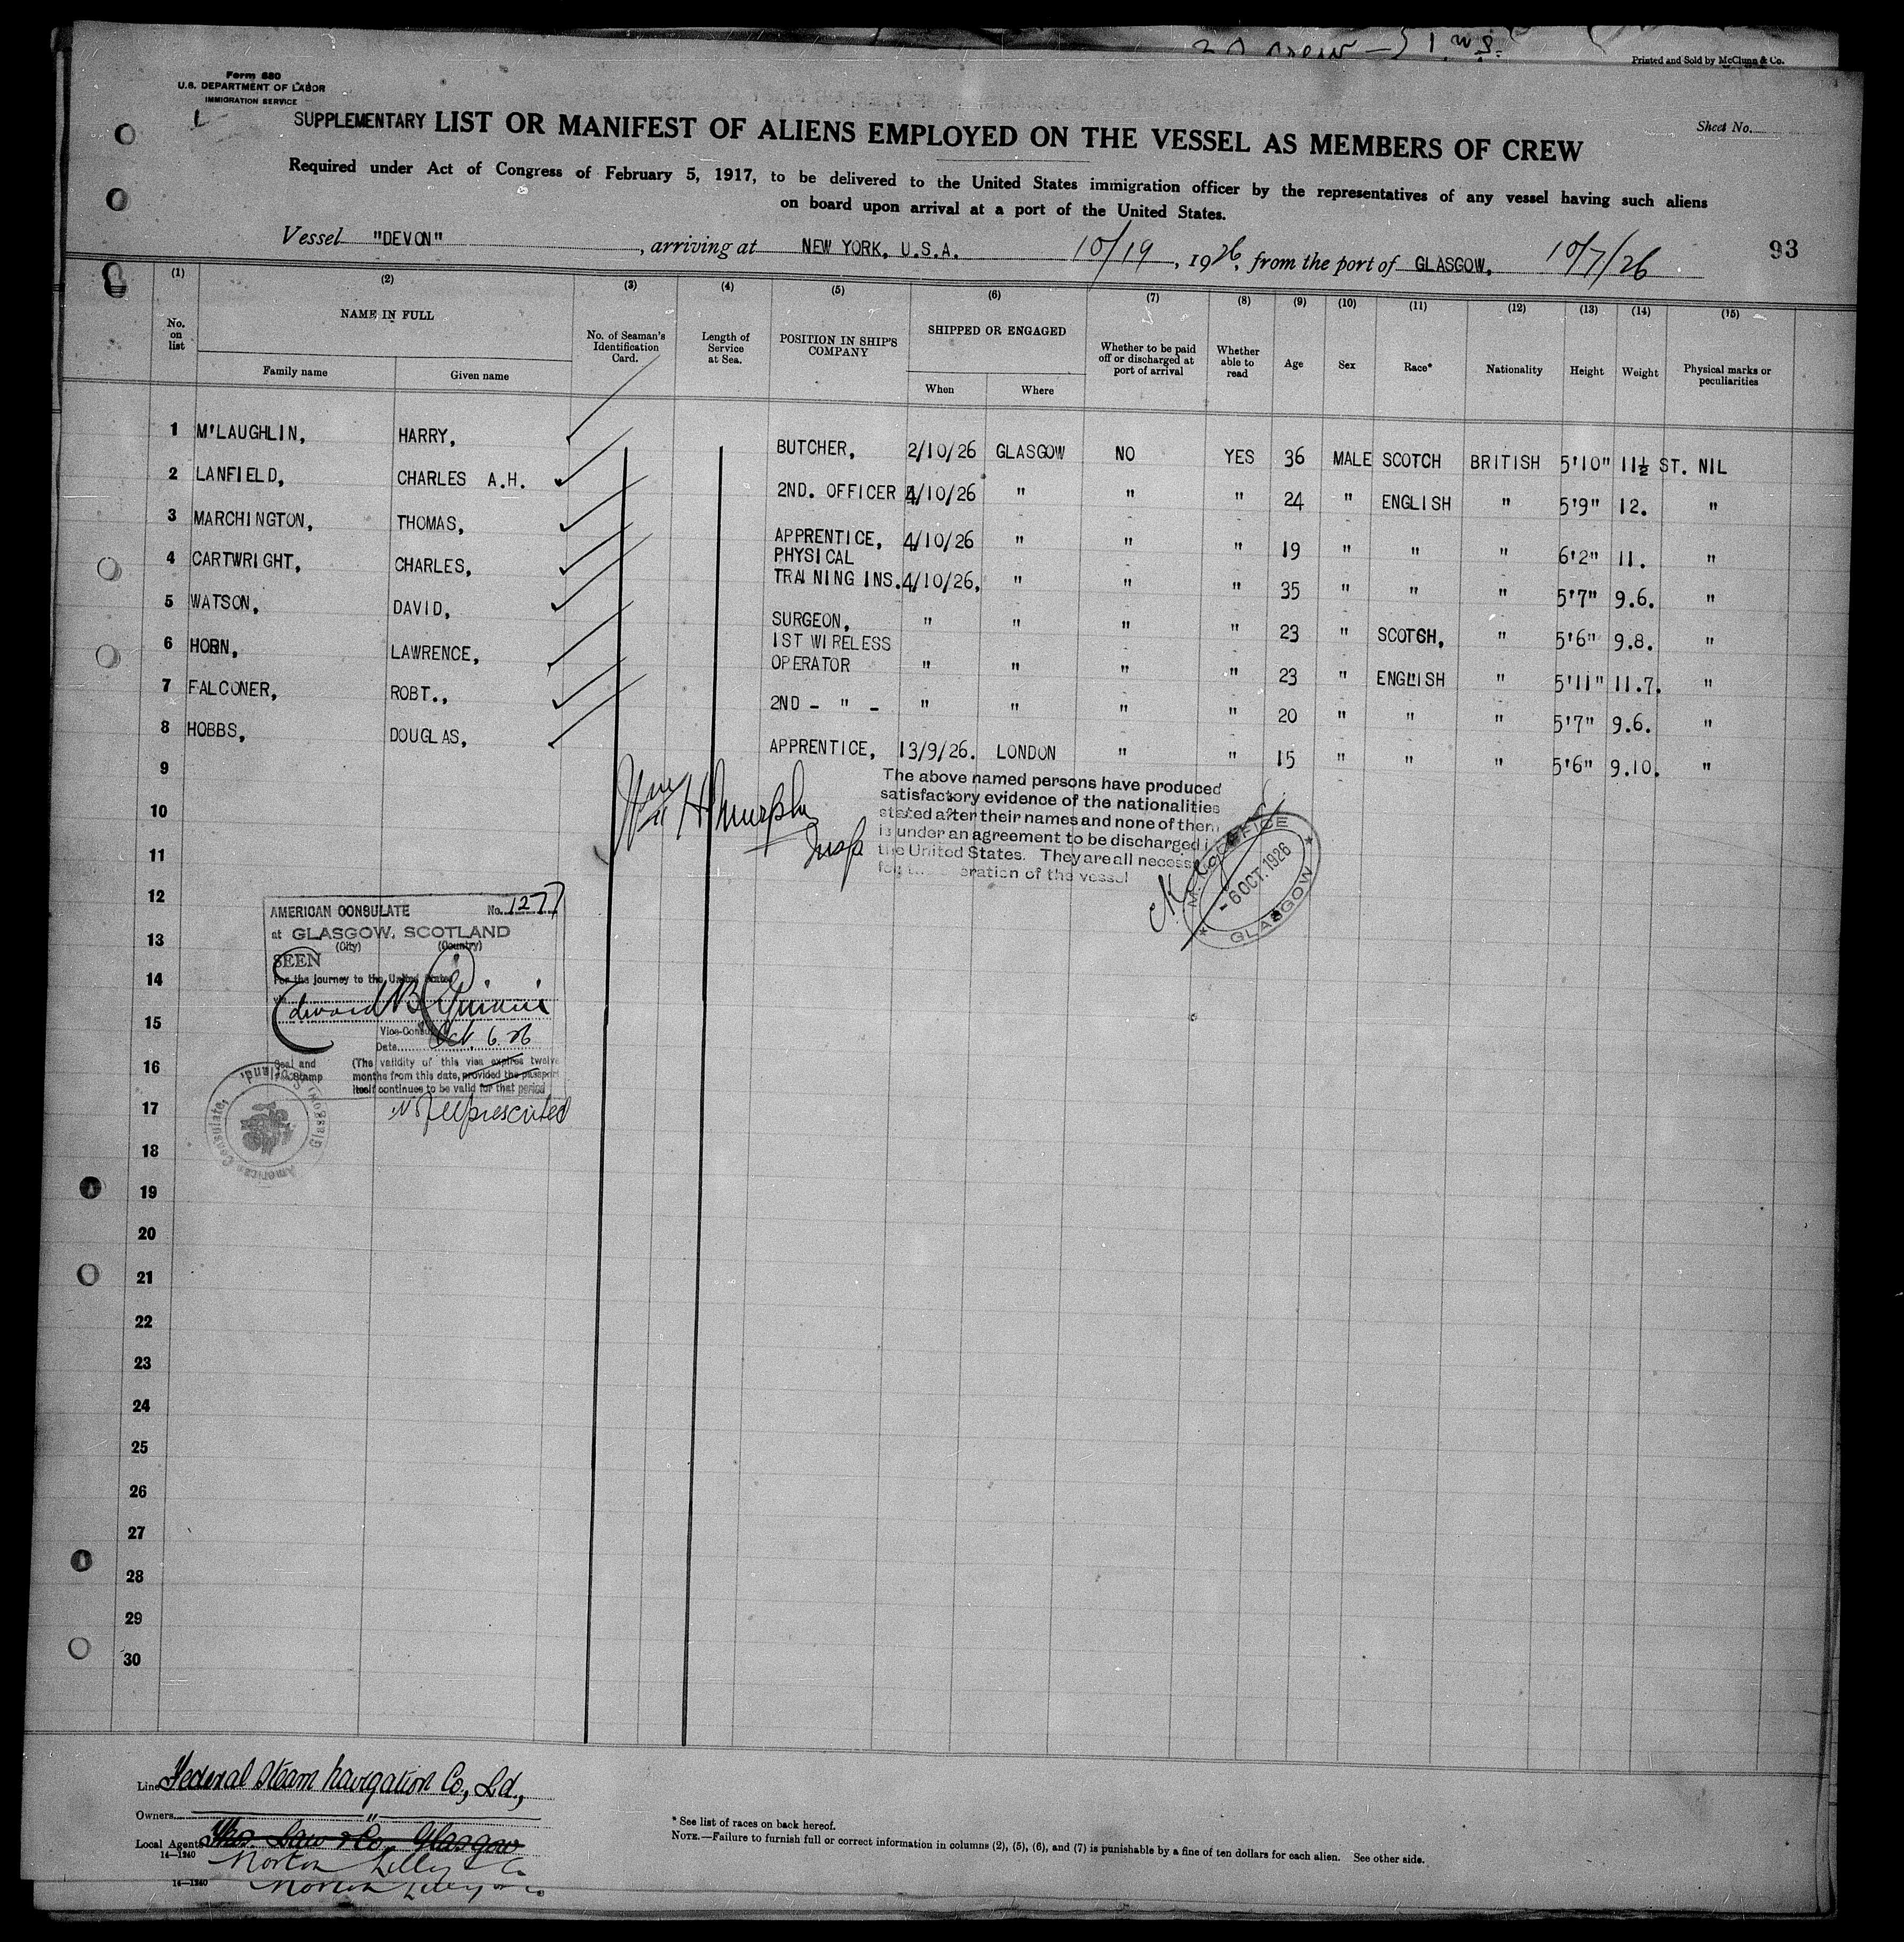 20 crew —
Printed and Sold by McClunn & Co.
Form 680
U.S. DEPARTMENT OF LABOR
IMMIGRATION SERVICE
Sheet No.
SUPPLEMENTARY LIST OR MANIFEST OF ALIENS EMPLOYED ON THE VESSEL AS MEMBERS OF CREW
Required under Act of Congress of February 5, 1917, to be delivered to the United States immigration officer by the representatives of any vessel having such aliens
on board upon arrival at a port of the United States.
Vessel "DEVON", arriving at NEW YORK, U.S.A. 10/19, 1926, from the port of GLASGOW. 10/7/26
93
(1) (2) (3) (4) (5) (6) (7) (8) (9) (10) (11) (12) (13) (14) (15)
No. on list NAME IN FULL No. of Seaman's Identification Card. Length of Service at Sea. POSITION IN SHIP'S COMPANY SHIPPED OR ENGAGED Whether to be paid off or discharged at port of arrival Whether able to read Age Sex Race* Nationality Height Weight Physical marks or peculiarities
Family name Given name When Where
1 M'LAUGHLIN, HARRY, BUTCHER, 2/10/26 GLASGOW NO YES 36 MALE SCOTCH BRITISH 5'10" 11½ ST. NIL
2 LANFIELD, CHARLES A.H. 2ND. OFFICER 4/10/26 " " " 24 " ENGLISH " 5'9" 12. "
3 MARCHINGTON, THOMAS, APPRENTICE, 4/10/26 " " " 19 " " " 6'2" 11. "
4 CARTWRIGHT, CHARLES, PHYSICAL TRAINING INS. 4/10/26. " " " 35 " " " 5'7" 9.6. "
5 WATSON, DAVID, SURGEON, " " " " 23 " SCOTCH, " 5'6" 9.8. "
6 HORN, LAWRENCE, 1ST WIRELESS OPERATOR " " " " 23 " ENGLISH " 5'11" 11.7. "
7 FALCONER, ROBT., 2ND - " - " " " " 20 " " " 5'7" 9.6. "
8 HOBBS, DOUGLAS, APPRENTICE, 13/9/26. LONDON " " 15 " " " 5'6" 9.10. "
9
10
11
12
13
14
15
16
17
18
19
20
21
22
23
24
25
26
27
28
29
30
Wm H Murphy
Insp
The above named persons have produced
satisfactory evidence of the nationalities
stated after their names and none of them
is under an agreement to be discharged i
the United States. They are all necess
eration of the vessel
M.M. OFFICE
- 6 OCT. 1926
GLASGOW
AMERICAN CONSULATE No. 1277
at GLASGOW, SCOTLAND
(City) (Country)
SEEN
For the journey to the United States
Edward B.
Vice-Consul
Date Oct. 6. 26
Seal and Fee Stamp
(The validity of this visa expires twelve
months from this date, provided the passport
itself continues to be valid for that period
American Consulate, Glasgow, Scotland.
Line Federal Steam Navigation Co., Ld.,
Owners "
Local Agents Thos. Law & Co., Glasgow
14—1240
Norton Lilly & Co
14—1240
Norton Lilly & Co
* See list of races on back hereof.
NOTE.—Failure to furnish full or correct information in columns (2), (5), (6), and (7) is punishable by a fine of ten dollars for each alien. See other side.